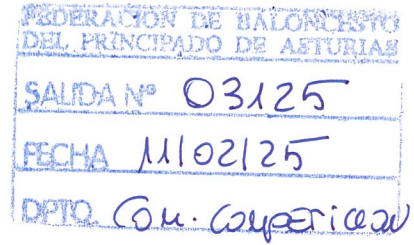 FEDERACIÓN DE BALONCESTO
DEL PRINCIPADO DE ASTURIAS
SALIDA Nº 03125
FECHA 11/02/25
DPTO. Com. Competición